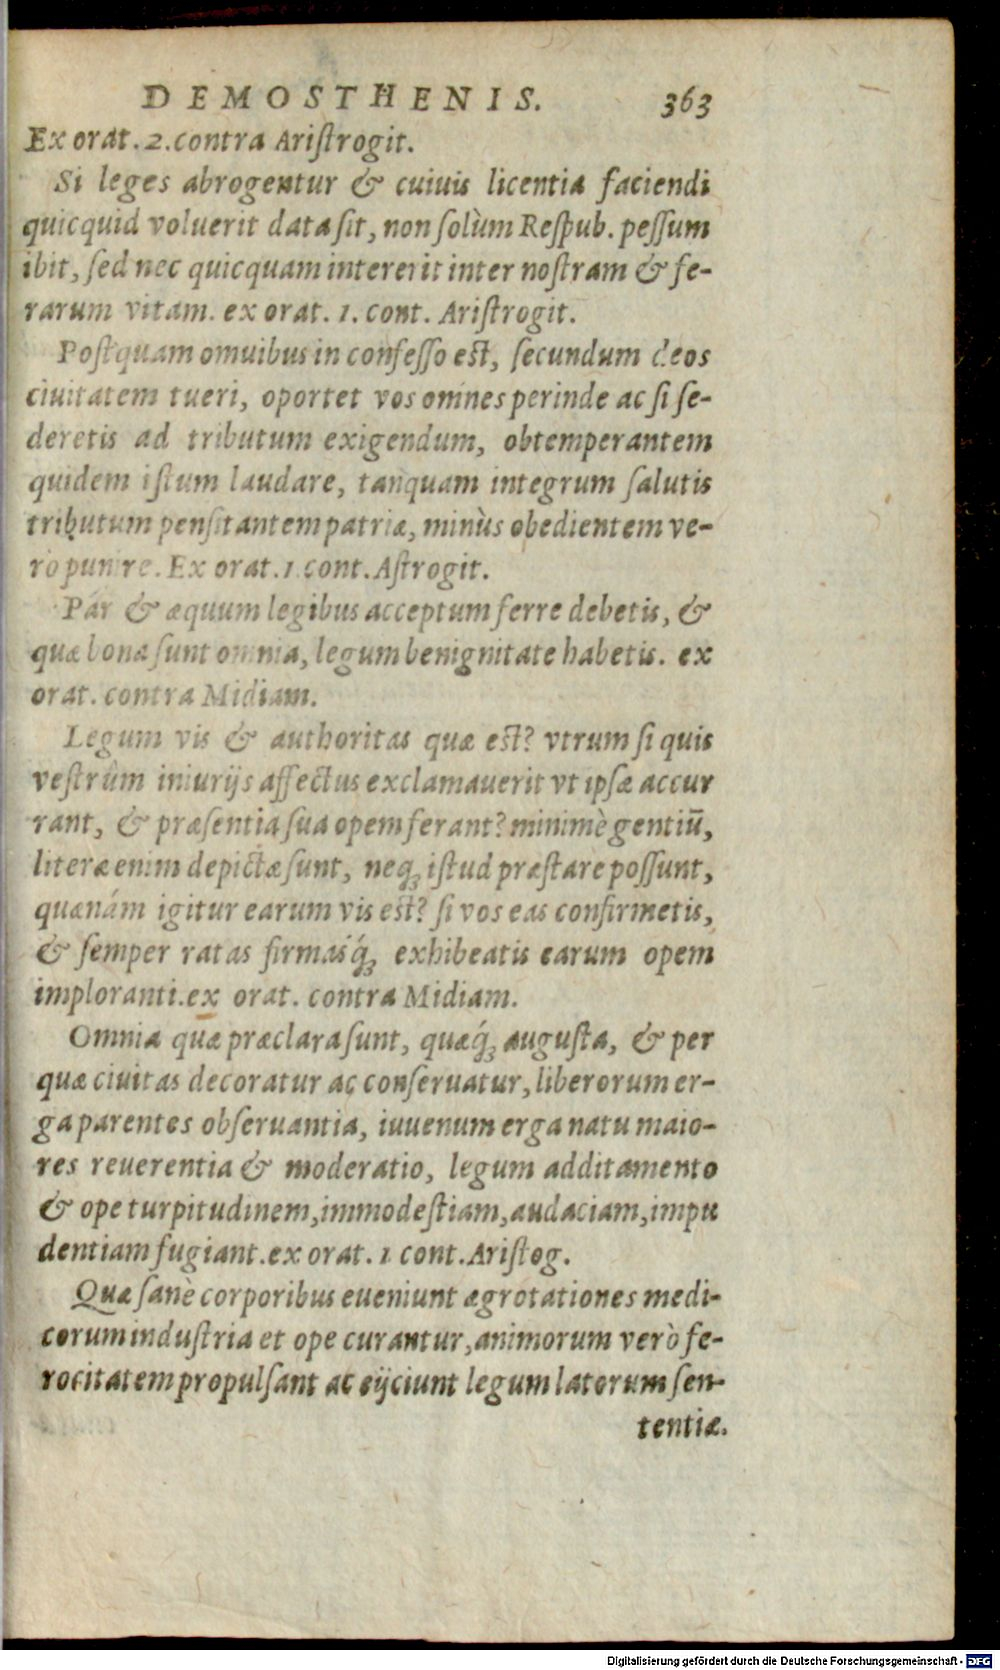 DEMOSTHENIS. 363
Ex orat. 2. contra Aristrogit.
Si leges abrogentur & cuiuis licentia faciendi
quicquid voluerit data sit, non solùm Respub. pessum
ibit, sed nec quicquam intererit inter nostram & fe-
rarum vitam. ex orat. 1. cont. Aristrogit.
Postquam omuibus in confesso est, secundum deos
ciuitatem tueri, oportet vos omnes perinde ac si se-
deretis ad tributum exigendum, obtemperantem
quidem istum laudare, tanquam integrum salutis
tributum pensitantem patriæ, minùs obedientem ve-
rò punire. Ex orat. 1. cont. Astrogit.
Par & æquum legibus acceptum ferre debetis, &
quæ bona sunt omnia, legum benignitate habetis. ex
orat. contra Midiam.
Legum vis & authoritas quæ est? vtrum si quis
vestrûm iniurijs affectus exclamauerit vt ipsæ accur
rant, & præsentia sua opem ferant? minimè gentiū,
literæ enim depictæ sunt, neq; istud præstare possunt,
quænám igitur earum vis est? si vos eas confirmetis,
& semper ratas firmasq́; exhibeatis earum opem
imploranti. ex orat. contra Midiam.
Omnia quæ præclara sunt, quæq́; augusta, & per
quæ ciuitas decoratur ac conseruatur, liberorum er-
ga parentes obseruantia, iuuenum erga natu maio-
res reuerentia & moderatio, legum additamento
& ope turpitudinem, immodestiam, audaciam, impu
dentiam fugiant. ex orat. 1 cont. Aristog.
Quæ sanè corporibus eueniunt ægrotationes medi-
corum industria et ope curantur, animorum verò fe-
rocitatem propulsant ac eijciunt legum latorum sen-
tentiæ.
Digitalisierung gefördert durch die Deutsche Forschungsgemeinschaft - DFG